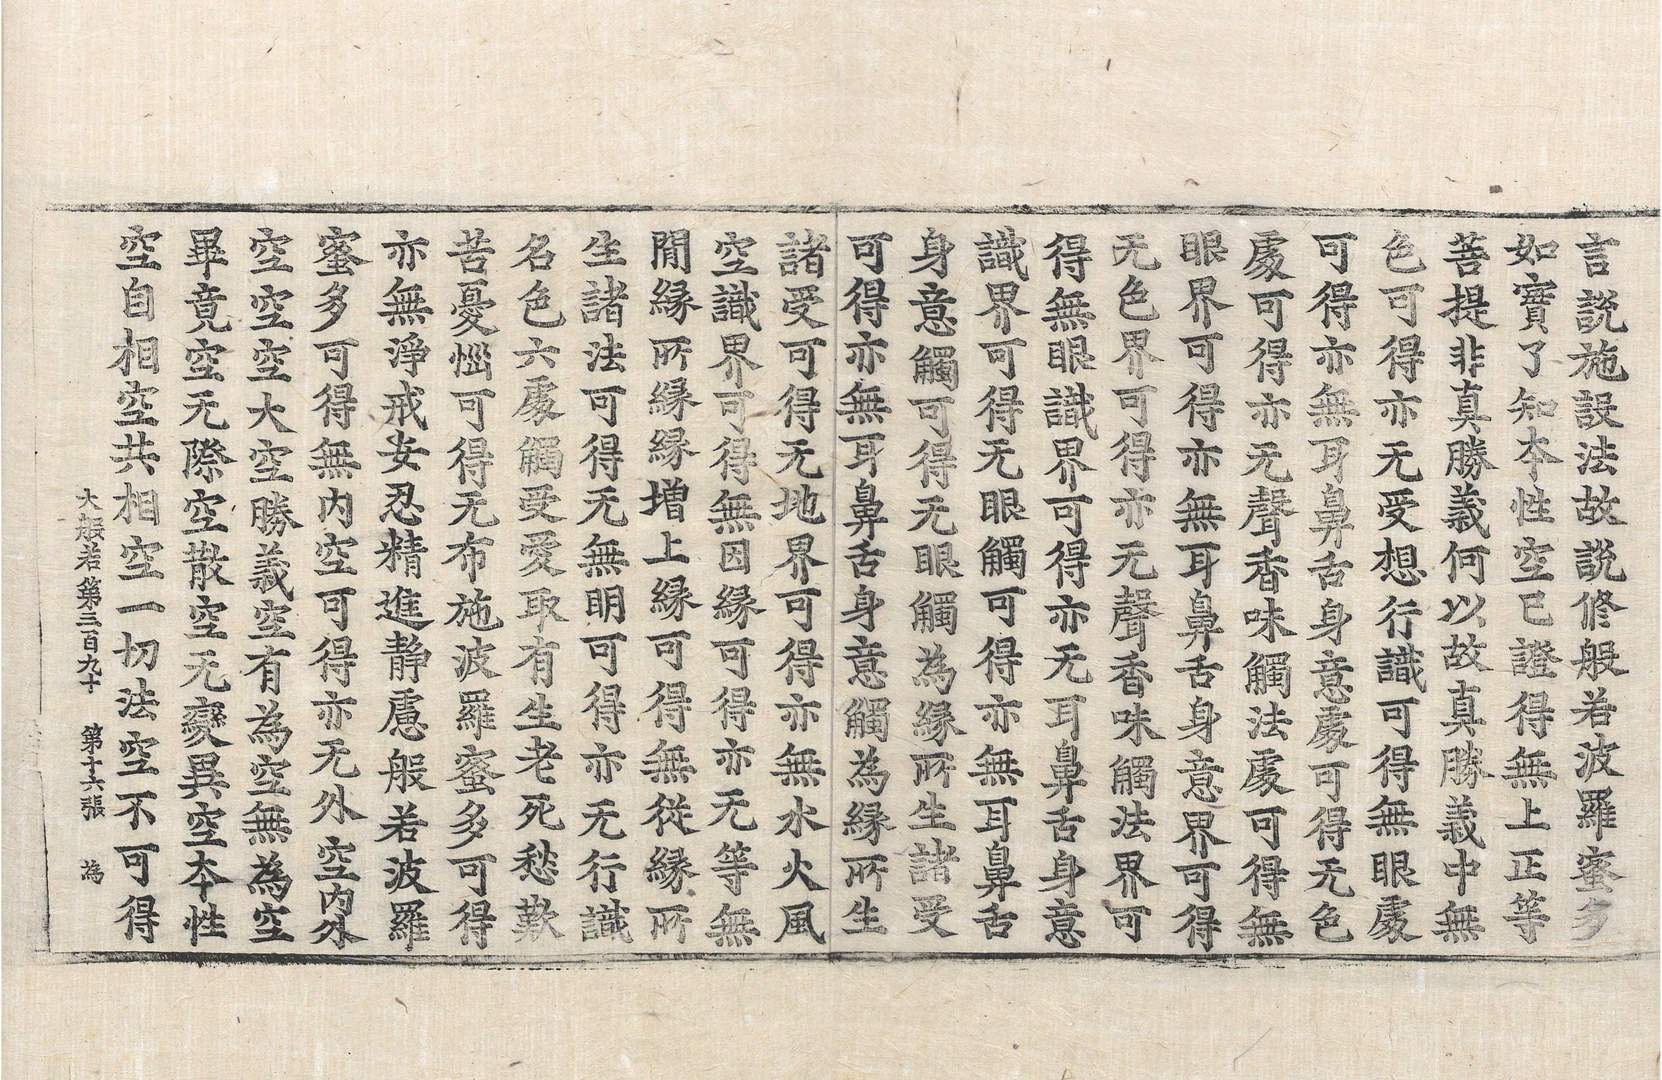 言說施設法故說修般若波羅蜜多
如實了知本性空已證得無上正等
菩提非真勝義何以故真勝義中無
色可得亦无受想行識可得無眼處
可得亦無耳鼻舌身意處可得无色
處可得亦无聲香味觸法處可得無
眼界可得亦無耳鼻舌身意界可得
无色界可得亦无聲香味觸法界可
得無眼識界可得亦无耳鼻舌身意
識界可得无眼觸可得亦無耳鼻舌
身意觸可得无眼觸為緣所生諸受
可得亦無耳鼻舌身意觸為緣所生
諸受可得无地界可得亦無水火風
空識界可得無因緣可得亦无等無
間緣所緣緣增上緣可得無從緣所
生諸法可得无無明可得亦无行識
名色六處觸受愛取有生老死愁歎
苦憂惱可得无布施波羅蜜多可得
亦無淨戒安忍精進靜慮般若波羅
蜜多可得無內空可得亦无外空內外
空空空大空勝義空有為空無為空
畢竟空无際空散空无變異空本性
空自相空共相空一切法空不可得
大般若第三百九十 第十六張 為